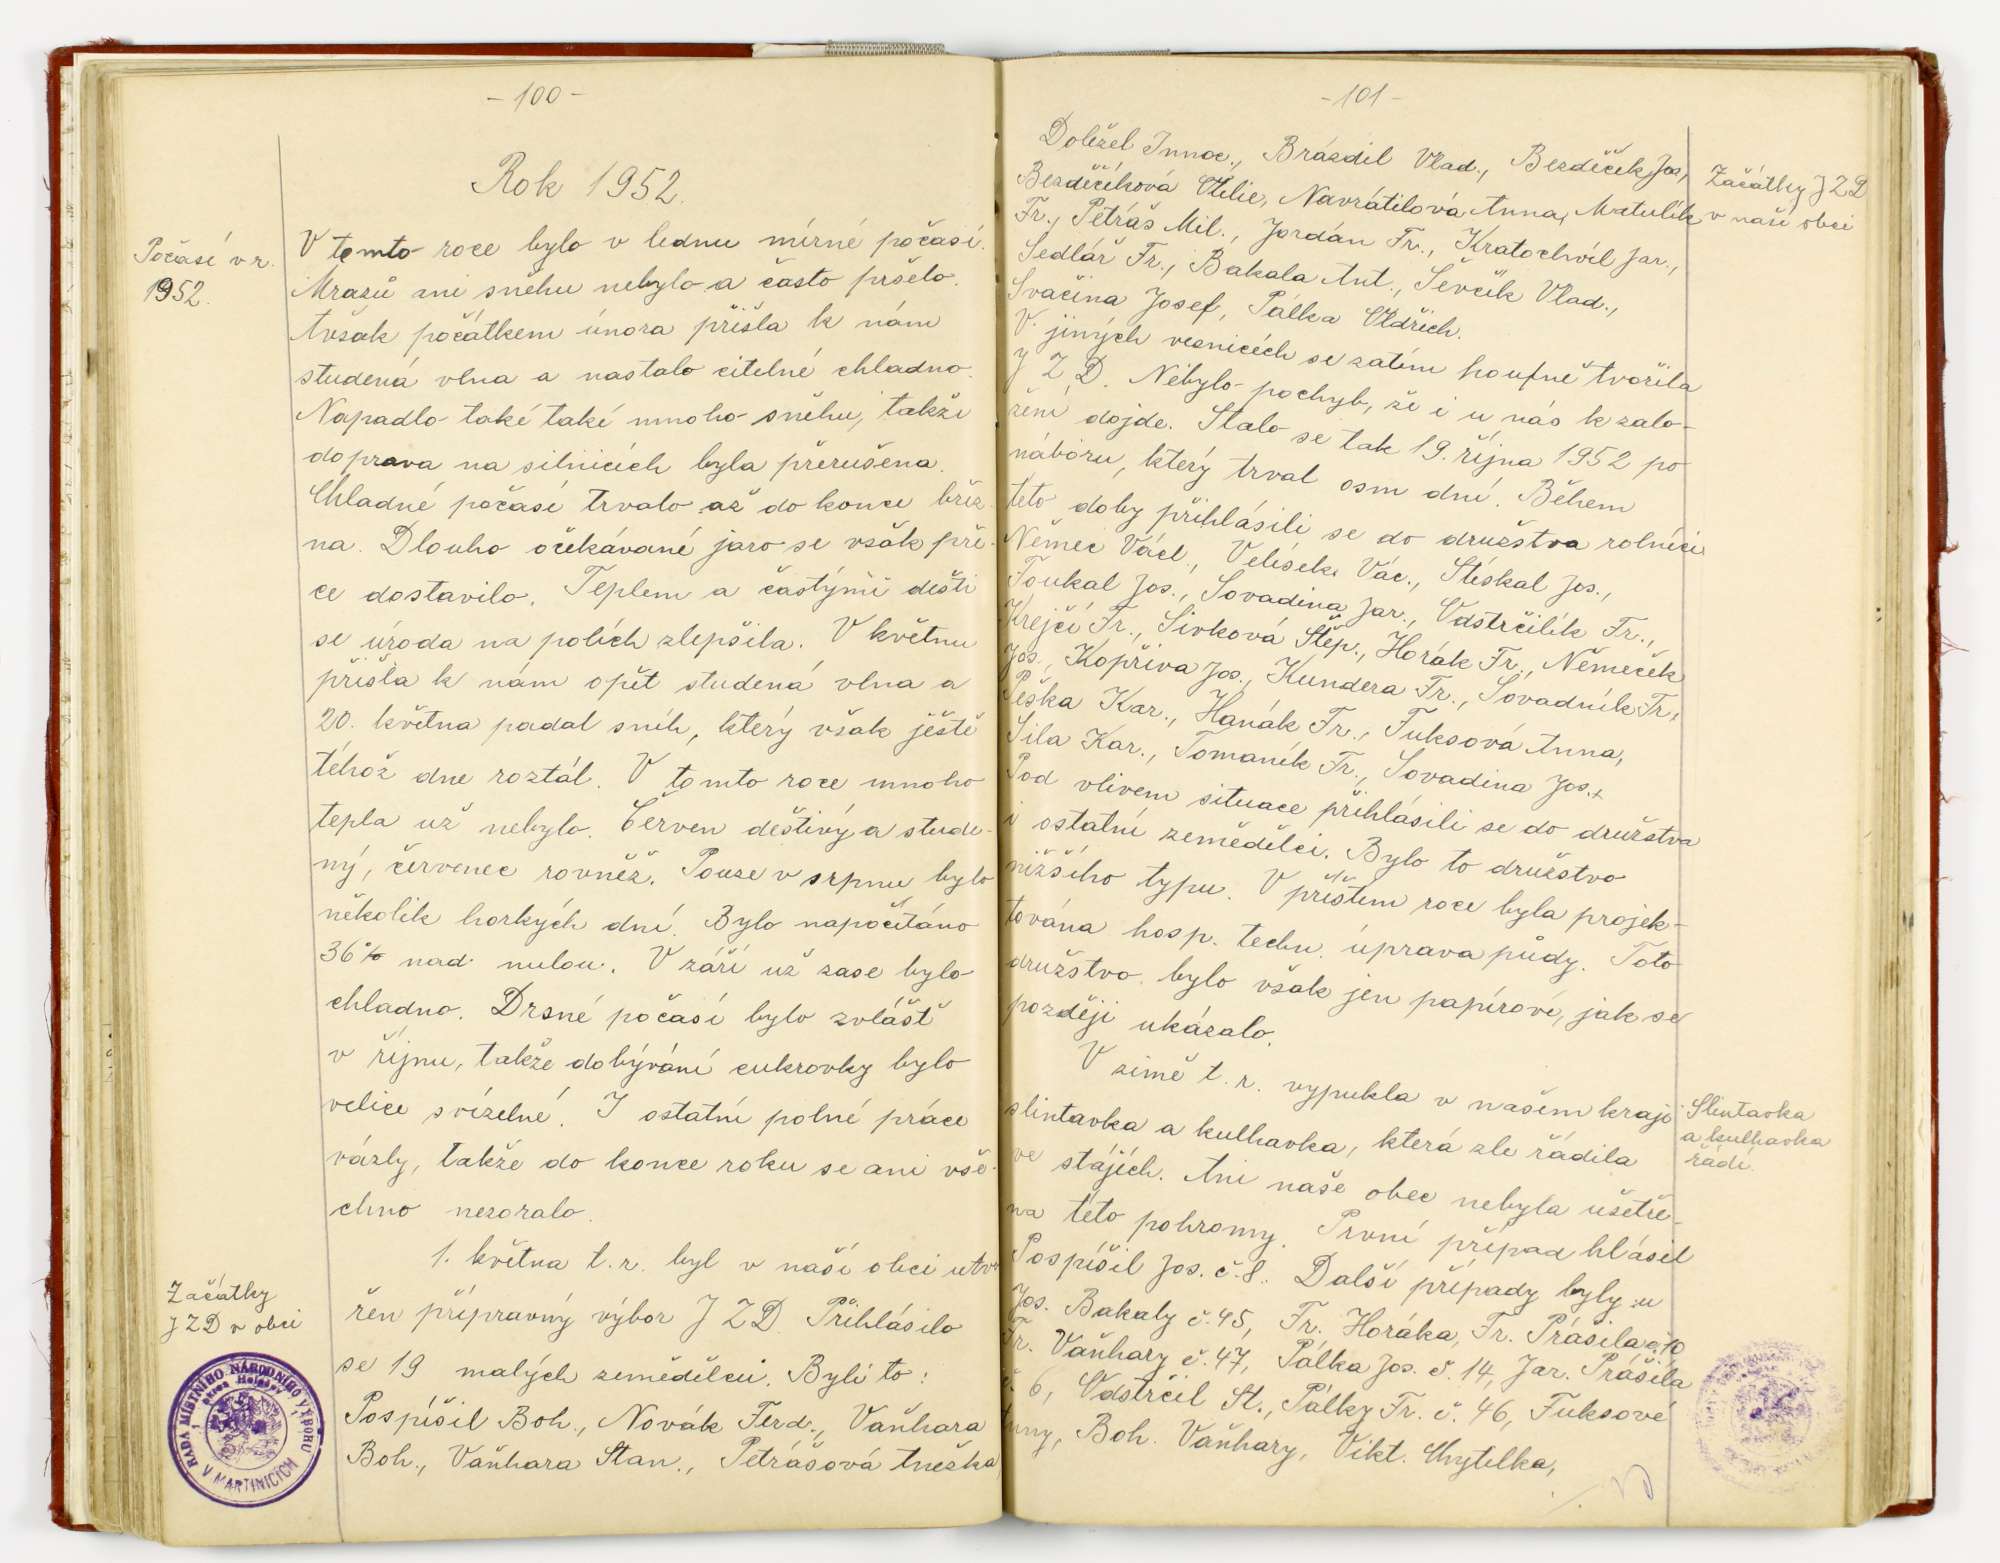 - 100 -
Rok 1952.
Počasí v r.
1952.
V tomto roce bylo v lednu mírné počasí.
Mrazů ani sněhu nebylo a často pršelo.
Avšak počátkem února přišla k nám
studená vlna a nastalo citelné chladno.
Napadlo také také mnoho sněhu, takže
doprava na silnicích byla přerušena.
Chladné počasí trvalo až do konce břez-
na. Dlouho očekávané jaro se však pře-
ce dostavilo. Teplem a častými dešti
se úroda na polích zlepšila. V květnu
přišla k nám opět studená vlna a
20. května padal sníh, který však ještě
téhož dne roztál. V tomto roce mnoho
tepla už nebylo. Červen deštivý a stude-
ný, červenec rovněž. Pouze v srpnu bylo
několik horkých dní. Bylo napočítáno
36% nad nulou. V září už zase bylo
chladno. Drsné počasí bylo zvlášť
v říjnu, takže dobývání cukrovky bylo
velice svízelné. I ostatní polné práce
vázly, takže do konce roku se ani vše-
chno nezoralo.
Začátky
JZD v obci
1. května t. r. byl v naší obci utvo
řen přípravný výbor JZD. Přihlásilo
se 19 malých zemědělců. Byli to:
Pospíšil Boh., Novák Ferd., Vaňhara
Boh., Vaňhara Stan., Petrášová Anežka,
RADA MÍSTNÍHO NÁRODNÍHO VÝBORU
okres Holešov
V MARTINICÍCH
- 101 -
Doležel Innoc., Brázdil Vlad., Bezděčík Jos.,
Bezděčíková Otilie, Navrátilová Anna, Matulík
Fr., Petráš Mil., Jordán Fr., Kratochvíl Jar.,
Sedlář Fr., Bakala Ant., Ševčík Vlad.,
Svačina Josef, Pálka Oldřich.
Začátky JZD
v naší obci
V jiných vesnicích se zatím houfně tvořila
JZD. Nebylo pochyb, že i u nás k zalo-
žení dojde. Stalo se tak 19. října 1952 po
náboru, který trval osm dní. Během
této doby přihlásili se do družstva rolníci
Němec Václ., Velísek Vác., Stískal Jos.,
Foukal Jos., Sovadina Jar., Odstrčilík Fr.,
Krejčí Fr., Sívková Štěp., Horák Fr., Němeček
Jos., Kopřiva Jos., Kundera Fr., Sovadník Fr.,
Peška Kar., Hanák Fr., Fuksová Anna,
Síla Kar., Tomaník Fr., Sovadina Jos.,
Pod vlivem situace přihlásili se do družstva
i ostatní zemědělci. Bylo to družstvo
nižšího typu. V příštím roce byla projek-
tována hosp. techn. úprava půdy. Toto
družstvo bylo však jen papírové, jak se
později ukázalo.
V zimě t. r. vypukla v našem kraji
slintavka a kulhavka, která zle řádila
ve stájích. Ani naše obec nebyla ušetře-
na této pohromy. První případ hlásil
Pospíšil Jos. č. 8. Další případy byly u
Jos. Bakaly č. 45, Fr. Horáka, Fr. Prášila č. 10,
Fr. Vaňhary č. 47, Pálka Jos. č. 14, Jar. Prášila
č. 6, Odstrčil St., Pálky Fr. č. 46, Fuksové
Anny, Boh. Vaňhary, Vikt. Chytilka,
Slintavka
a kulhavka
řádí.